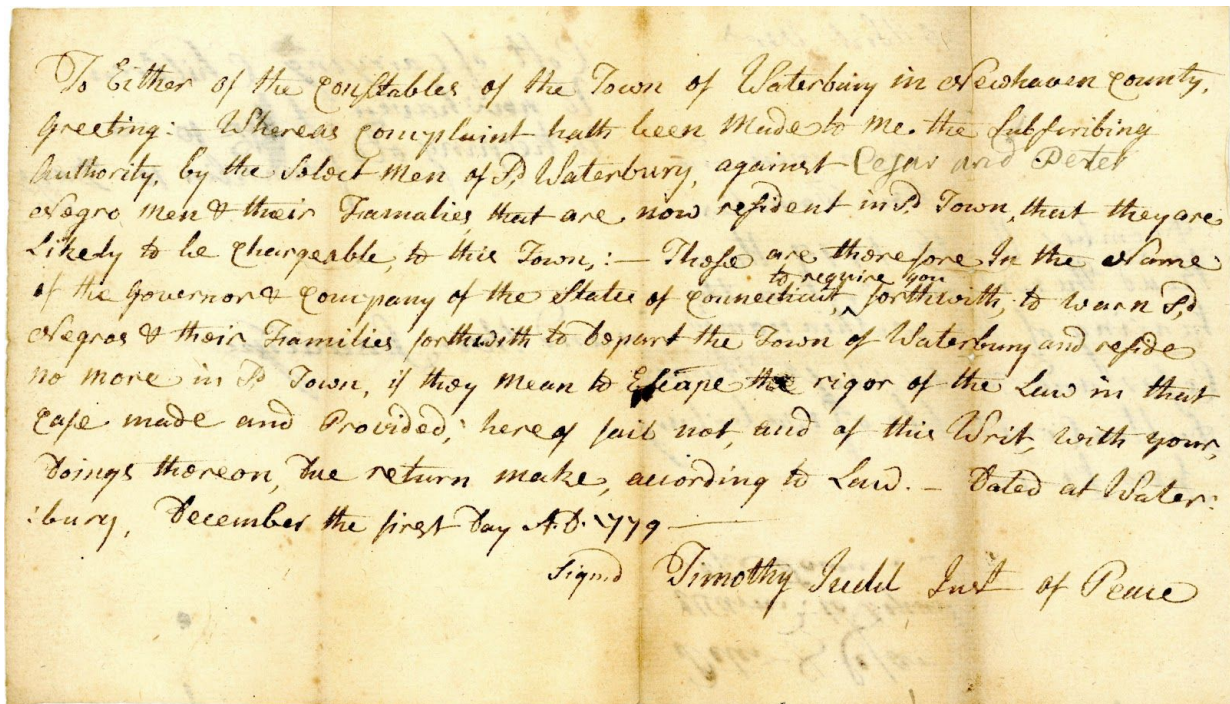 To Either of the Constables of the Town of Waterbury in Newhaven County,
Greeting:— Whereas Complaint hath been Made to me the Subscribing
Authority, by the Select Men of Sd Waterbury, against Cesar and Peter
Negro Men & their Famalies, that are now resident in Sd Town, that they are
Likely to be Chargeable, to this Town,:— These are therefore In the Name
of the Governor & Company of the State of Connecticut, to require you forthwith, to warn Sd
Negros & their Families forthwith to Depart the Town of Waterbury and reside
no more in Sd Town, if they Mean to Escape the rigor of the Law in that
Case made and Provided; hereof fail not, and of this Writ, with your,
Doings thereon, Due return make, according to Law. — Dated at Water:
:bury, December the first Day A.D. 1779 —
Signd Timothy Judd Just of Peace